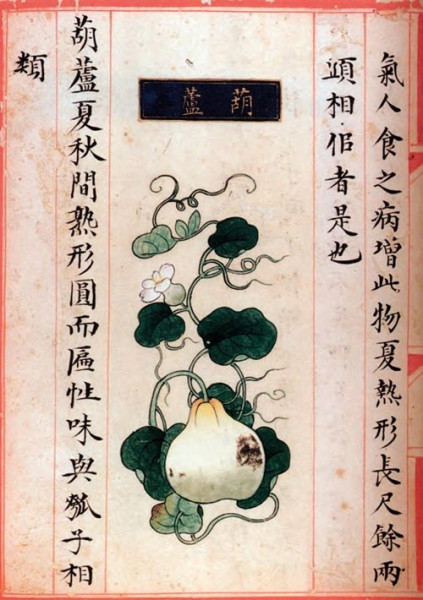 氣人食之病增此物夏熟形長尺餘兩
頭相佀者是也
葫蘆
葫蘆夏秋間熟形圓而匾性味與瓠子相
類